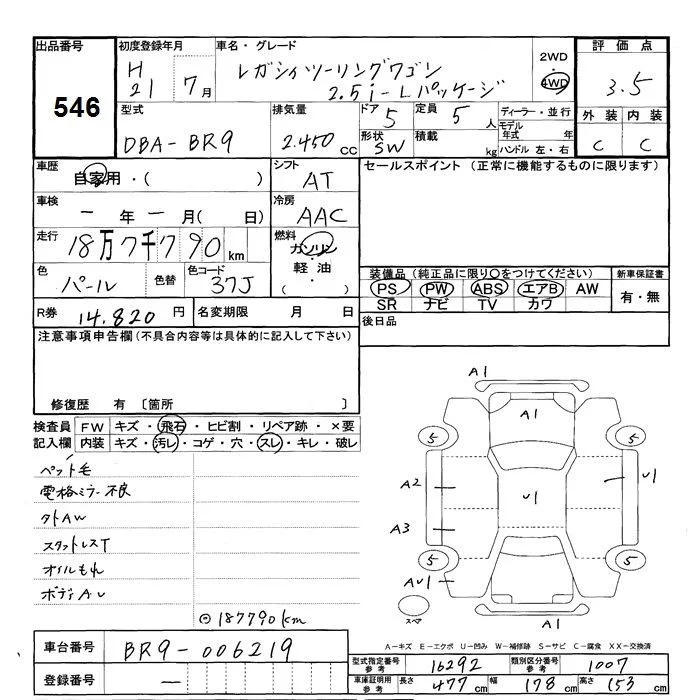 出品番号 初度登録年月 車名・グレード 評価点
546
H 21 7月
レガシィツーリングワゴン
2.5i-Lパッケージ
2WD
・
4WD
3.5
型式 排気量 ドア 定員 ディーラー・並行 外装 内装
DBA-BR9 2.450cc 5 5人
モデル年式 年
形状 積載 kg ハンドル 左・右
SW
C C
車歴 シフト セールスポイント (正常に機能するものに限ります)
自家用・( ) AT
車検 冷房
ー年ー月( 日) AAC
走行 燃料
18万7千790km ガソリン
・
軽油
・
( )
色 色替 色コード
パール 37J
装備品(純正品に限り○をつけてください) 新車保証書
PS PW ABS エアB AW 有・無
SR ナビ TV カワ
R券 14.820円 名変期限 月 日
後日品
注意事項申告欄(不具合内容等は具体的に記入して下さい)
修復歴 有 〔箇所 〕
検査員 FW キズ・飛石・ヒビ割・リペア跡・×要
記入欄 内装 キズ・汚レ・コゲ・穴・スレ・キレ・破レ
ペット毛
電格ミラー不良
タトAW
スタットレスT
オイルもれ
ボディAU
⊙187790km
A1
A1
5 5
A2 U1 U1
A3
5 5
AU1
スペア
A1
A-キズ E-エクボ U-凹み W-補修跡 S-サビ C-腐食 XX-交換済
車台番号 BR9-006219
登録番号 ー
型式指定番号 参考 16292 類別区分番号 参考 1007
車庫証明用 参考 長さ 477cm 幅 178cm 高さ 153cm